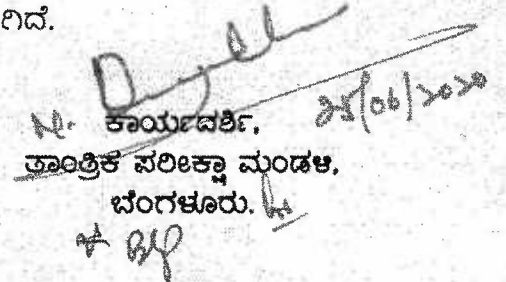 ಗಿದೆ.
25/06/2020
ಕಾರ್ಯದರ್ಶಿ,
ತಾಂತ್ರಿಕ ಪರೀಕ್ಷಾ ಮಂಡಳಿ,
ಬೆಂಗಳೂರು.